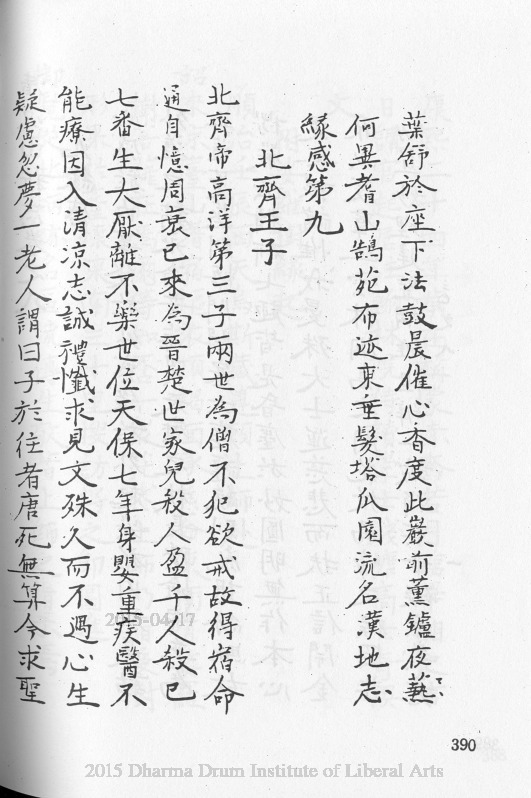 葉舒於座下法鼓晨催心香度此巖前薰鑪夜爇
何異耆山鷲苑布迹東垂髮塔瓜園流名漢地志
緣感第九
北齊王子
北齊帝高洋第三子兩世為僧不犯欲戒故得宿命
通自憶周衰已來為晉楚世家兒殺人盈千人殺已
七番生大厭離不樂世位天保七年身嬰重疾醫不
能療因入清凉志誠禮懺求見文殊久而不遇心生
疑慮忽夢一老人謂曰子於往者唐死無算今求聖
2015-04-17
390
2015 Dharma Drum Institute of Liberal Arts